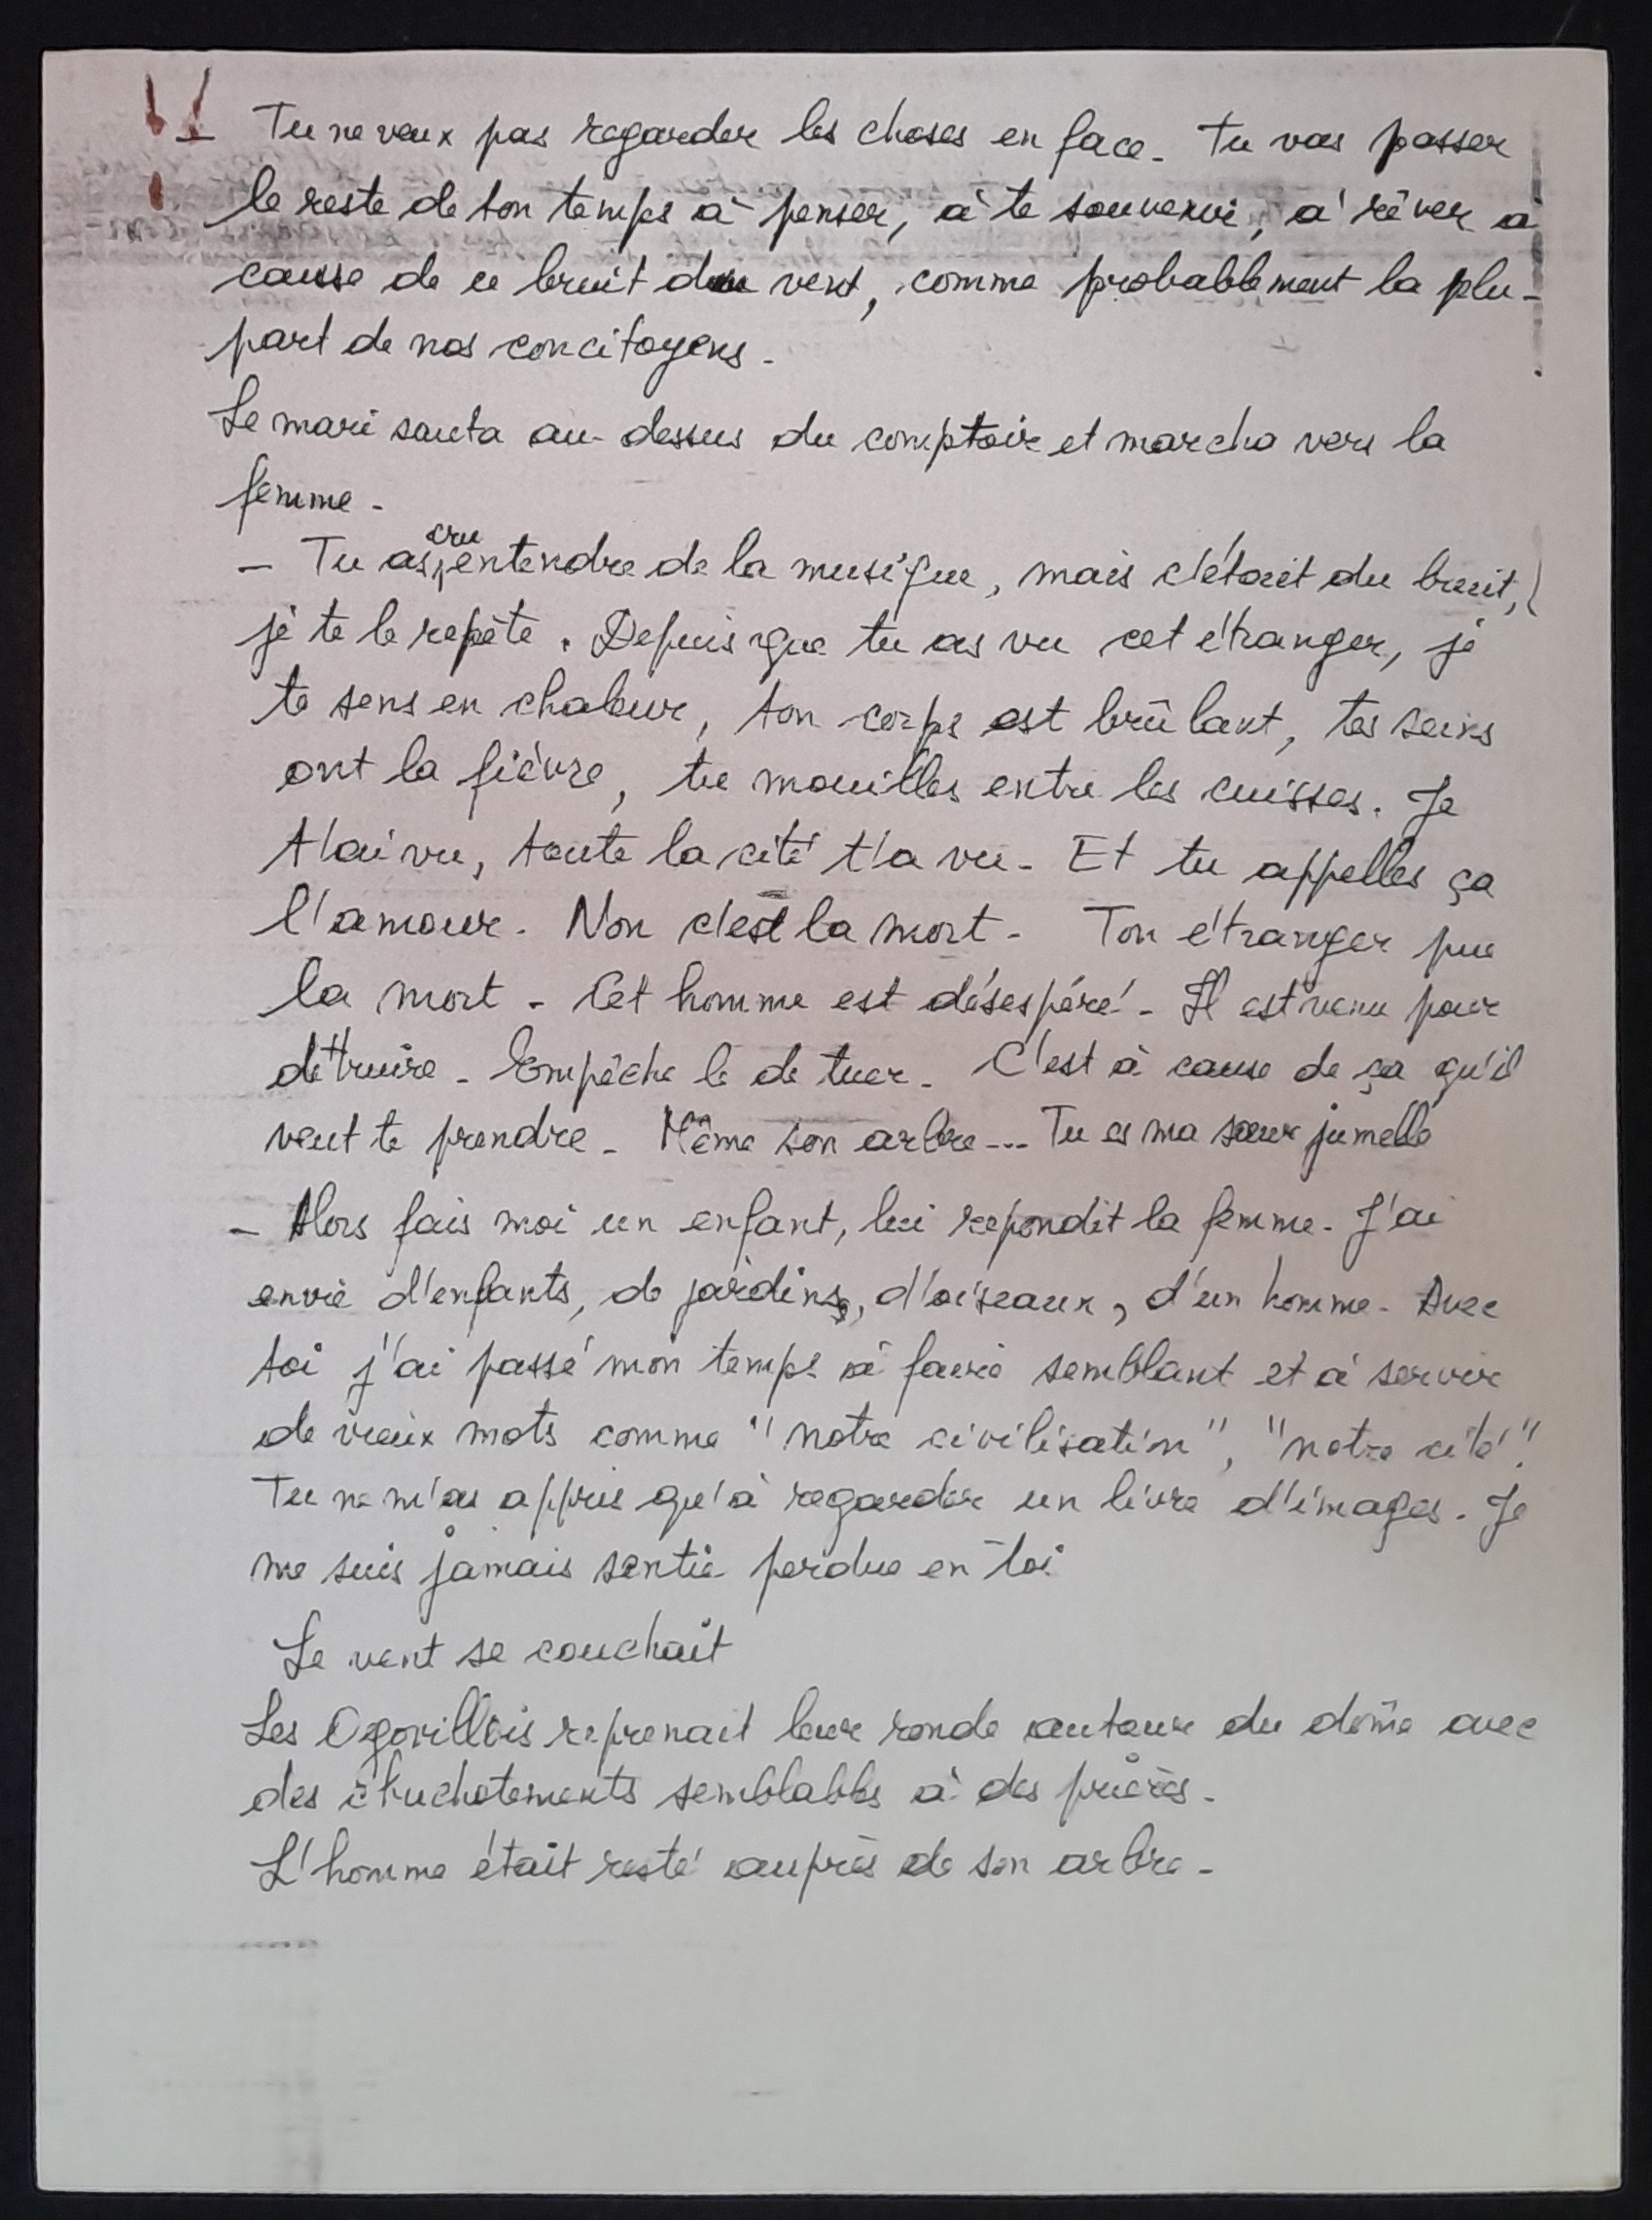 — Tu ne veux pas regarder les choses en face. Tu vas passer
le reste de ton temps à penser, à te souvenir, à rêver à
cause de ce bruit du vent, comme probablement la plu-
part de nos concitoyens.
Le mari sauta au-dessus du comptoir et marcha vers la
femme.
— Tu as cru entendre de la musique, mais c'était du bruit,
je te le repète. Depuis que tu as vu cet étranger, je
te sens en chaleur, ton corps est brûlant, tes seins
ont la fièvre, tu mouilles entre les cuisses. Je
t'ai vu, toute la cité t'a vu. Et tu appelles ça
l'amour. Non c'est la mort. Ton étranger pue
la mort. Cet homme est désespéré. Il est venu pour
détruire. Empêche le de tuer. C'est à cause de ça qu'il
veut te prendre. Même son arbre... Tu es ma sœur jumelle
— Alors fais moi un enfant, lui repondit la femme. J'ai
envie d'enfants, de jardins, d'oiseaux, d'un homme. Avec
toi j'ai passé mon temps à faire semblant et à servir
de vieux mots comme "notre civilisation", "notre cité".
Tu ne m'as appris qu'à regarder un livre d'images. Je
me suis jamais sentie perdue en toi
Le vent se couchait
Les Ogorillois reprenait leur ronde autour du dôme avec
des chuchotements semblables à des prières.
L'homme était resté auprès de son arbre.